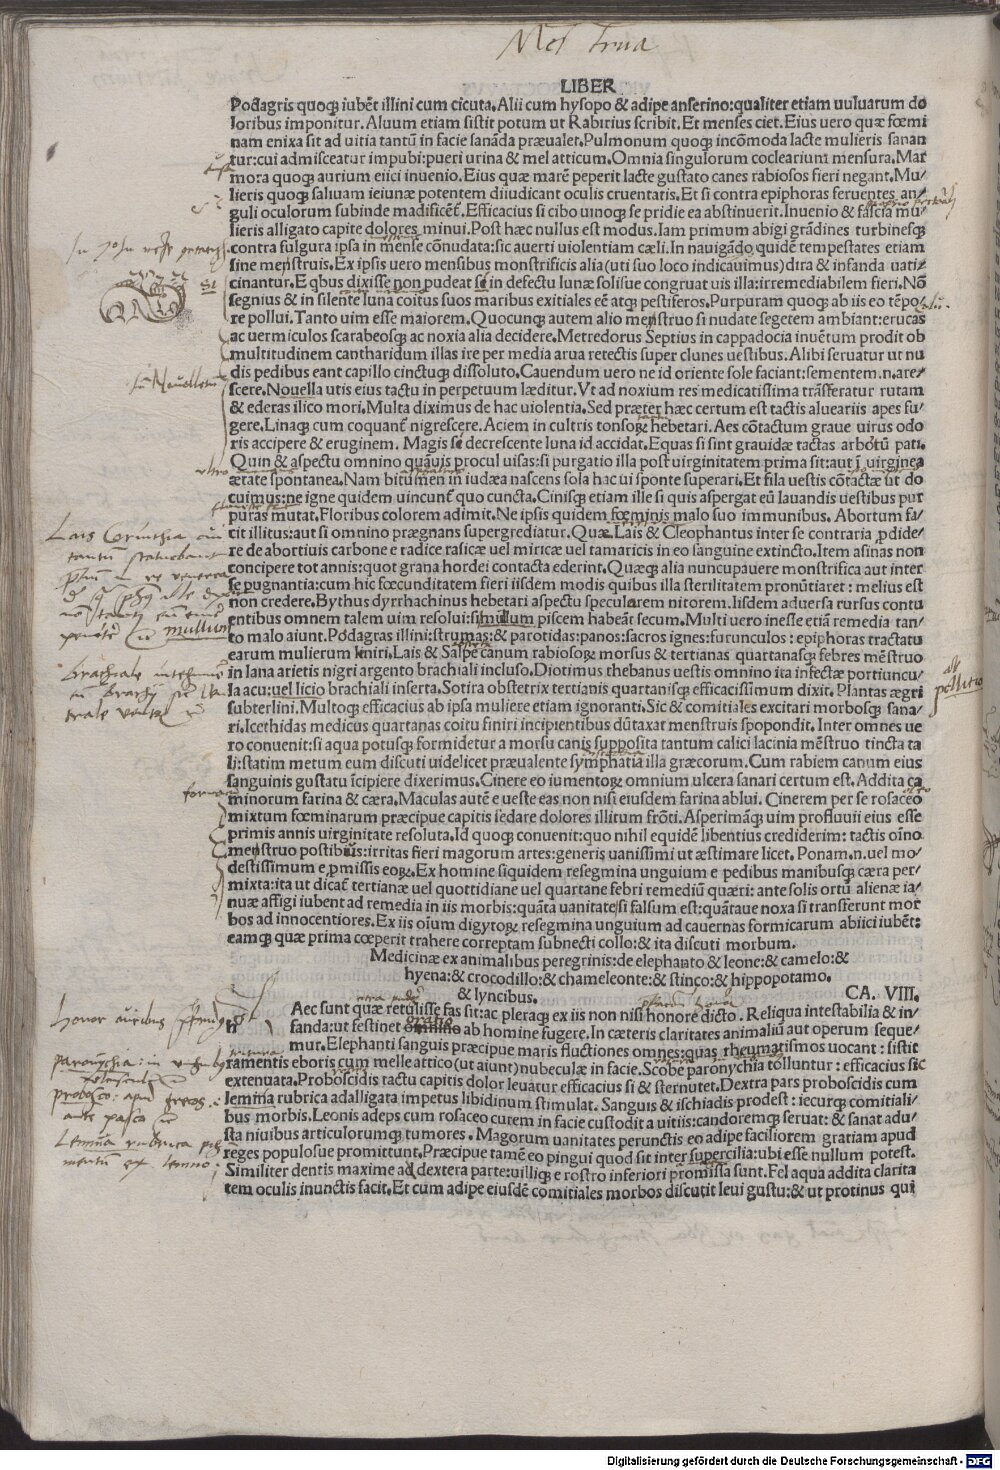 Menstrua
LIBER
Podagris quoqꝫ iubēt illini cum cicuta. Alii cum hysopo & adipe anserino: qualiter etiam uuluarum do
loribus imponitur. Aluum etiam sistit potum ut Rabirius scribit. Et menses ciet. Eius uero quæ fœmi
nam enixa sit ad uitia tantū in facie sanāda præualet. Pulmonum quoqꝫ incōmoda lacte mulieris sanan
tur: cui admisceatur impubi: pueri urina & mel atticum. Omnia singulorum coclearium mensura. Mar
mora quoqꝫ aurium eiici inuenio. Eius quæ marē peperit lacte gustato canes rabiosos fieri negant. Mu/
lieris quoqꝫ saliuam ieiunæ potentem diiudicant oculis cruentatis. Et si contra epiphoras feruentes an/
guli oculorum subinde madificēt. Efficacius si cibo uinoqꝫ se pridie ea abstinuerit. Inuenio & fascia mu/
lieris alligato capite dolores minui. Post hæc nullus est modus. Iam primum abigi grādines turbinesqꝫ
contra fulgura ipsa in mense cōnudata: sic auerti uiolentiam cæli. In nauigādo quidē tempestates etiam
sine menstruis. Ex ipsis uero mensibus monstrificis alia (uti suo loco indicauimus) dira & infanda uati/
cinantur. E qbus dixisse non pudeat se in defectu lunæ solisue congruat uis illa: irremediabilem fieri. Nō
segnius & in silente luna coitus suos maribus exitiales eē atqꝫ pestiferos. Purpuram quoqꝫ ab iis eo tēpo/
re pollui. Tanto uim esse maiorem. Quocunqꝫ autem alio menstruo si nudatæ segetem ambiant: erucas
ac uermiculos scarabeosqꝫ ac noxia alia decidere. Metredorus Septius in cappadocia inuētum prodit ob
multitudinem cantharidum illas ire per media arua retectis super clunes uestibus. Alibi seruatur ut nu
dis pedibus eant capillo cinctuqꝫ dissoluto. Cauendum uero ne id oriente sole faciant: sementem .n. are/
scere. Nouella utis eius tactu in perpetuum læditur. Vt ad noxium res medicatissima trāsferatur rutam
& ederas ilico mori. Multa diximus de hac uiolentia. Sed præter hæc certum est tactis alueariis apes fu/
gere. Linaqꝫ cum coquant̄ nigrescere. Aciem in cultris tonsoꝝ hebetari. Aes cōtactum graue uirus odo
ris accipere & eruginem. Magis se decrescente luna id accidat. Equas si sint grauidæ tactas arbotū pati.
Quin & aspectu omnino quāuis procul uisas: si purgatio illa post uirginitatem prima sit: aut ī uirginea
ætate spontanea. Nam bitumen in iudæa nascens sola hac ui sponte superari. Et fila uestis cōtactæ ut do
cuimus: ne igne quidem uincunt̄ quo cuncta. Cinisqꝫ etiam ille si quis aspergat eū lauandis uestibus pur
puras mutat. Floribus colorem adimit. Ne ipsis quidem fœminis malo suo immunibus. Abortum fa/
cit illitus: aut si omnino prægnans supergrediatur. Quæ Lais & Cleophantus inter se contraria ꝓdide/
re de abortiuis carbone e radice rasicæ uel miricæ uel tamaricis in eo sanguine extincto. Item asinas non
concipere tot annis: quot grana hordei contacta ederint. Quæqꝫ alia nuncupauere monstrifica aut inter
se pugnantia: cum hic fœcunditatem fieri iisdem modis quibus illa sterilitatem pronūtiaret: melius est
non credere. Bythus dyrrhachinus hebetari aspectu speculorem nitorem. Iisdem aduersa rursus contu
entibus omnem talem uim resolui: si mullum piscem habeāt secum. Multi uero inesse etiā remedia tan/
to malo aiunt. Podagras illini: strumas: & parotidas: panos: sacros ignes: furunculos: epiphoras tractatu
earum mulierum leniri. Lais & Salpe canum rabiosoꝝ morsus & tertianas quartanasqꝫ febres mēstruo
in lana arietis nigri argento brachiali incluso. Diotimus thebanus uestis omnino ita infectæ portiuncu/
la acu: uel licio brachiali inserta. Sotira obstetrix tertianis quartanisqꝫ efficacissimum dixit. Plantas ægri
subterlini. Multoqꝫ efficacius ab ipsa muliere etiam ignoranti. Sic & comitiales excitari morbosqꝫ sana/
ri. Icethidas medicus quartanas coitu finiri incipientibus dūtaxat menstruis spopondit. Inter omnes ue
ro conuenit: si aqua potusqꝫ formidetur a morsu canis supposita tantum calici lacinia mēstruo tincta ta
li: statim metum eum discuti uidelicet præualente symphatia illa græcorum. Cum rabiem canum eius
sanguinis gustatu īcipere dixerimus. Cinere eo iumentoꝝ omnium ulcera sanari certum est. Addita ca
minorum farina & cæra. Maculas autē e ueste eas non nisi eiusdem farina ablui. Cinerem per se rosaceo
mixtum fœminarum præcipue capitis sedare dolores illitum frōti. Asperimāqꝫ uim profluuii eius esse
primis annis uirginitate resoluta. Id quoqꝫ conuenit: quo nihil equidē libentius crediderim: tactis oīno
menstruo postibus: irritas fieri magorum artes: generis uanissimi ut æstimare licet. Ponam .n. uel mo/
destissimum e ꝓmissis eoꝝ. Ex homine siquidem resegmina unguium e pedibus manibusqꝫ cæra per/
mixta: ita ut dicat̄ tertianæ uel quottidianæ uel quartanæ febri remediū quæri: ante solis ortū alienæ ia/
nuæ affigi iubent ad remedia in iis morbis: quāta uanitate si falsum est: quātaue noxa si transferunt mor
bos ad innocentiores. Ex iis oīum digytoꝝ resegmina unguium ad cauernas formicarum abiici iubēt:
eamqꝫ quæ prima cœperit trahere correptam subnecti collo: & ita discuti morbum.
Medicinæ ex animalibus peregrinis: de elephanto & leone: & camelo: &
hyena: & crocodillo: & chameleonte: & stinco: & hippopotamo.
& lyncibus. CA. VIII.
Aec sunt quæ retulisse fas sit: ac pleraqꝫ ex iis non nisi honore dicto. Reliqua intestabilia & in/
h fanda: ut festinet omnino ab homine fugere. In cæteris claritates animaliū aut operum seque/
mur. Elephanti sanguis præcipue maris fluctiones omnes: quas rheumatismos uocant: sistit
ramentis eboris cum melle attico (ut aiunt) nubeculæ in facie. Scobe paronychia tolluntur: efficacius sic
extenuata. Proboscidis tactu capitis dolor leuatur efficacius si & sternutet. Dextra pars proboscidis cum
lemnia rubrica adalligata impetus libidinum stimulat. Sanguis & ischiadis prodest: iecurqꝫ comitiali/
bus morbis. Leonis adeps cum rosaceo cutem in facie custodit a uitiis: candoremqꝫ seruat: & sanat adu/
sta niuibus articulorumqꝫ tumores. Magorum uanitates perunctis eo adipe faciliorem gratiam apud
reges populosue promittunt. Præcipue tamē eo pingui quod sit inter supercilia: ubi esse nullum potest.
Similiter dentis maxime ad dextera parte: uilliqꝫ e rostro inferiori promissa sunt. Fel aqua addita clarita
tem oculis inunctis facit. Et cum adipe eiusdē comitiales morbos discutit leui gustu: & ut protinus qui
Nouellas
Lais Corinthia
mullum
Brachiale
pollutio
formicarum
oratio
Honor auribus
paronychia: in
probosco:
pasco
Lemnia rubrica
ex lemno:
Digitalisierung gefördert durch die Deutsche Forschungsgemeinschaft - DFG